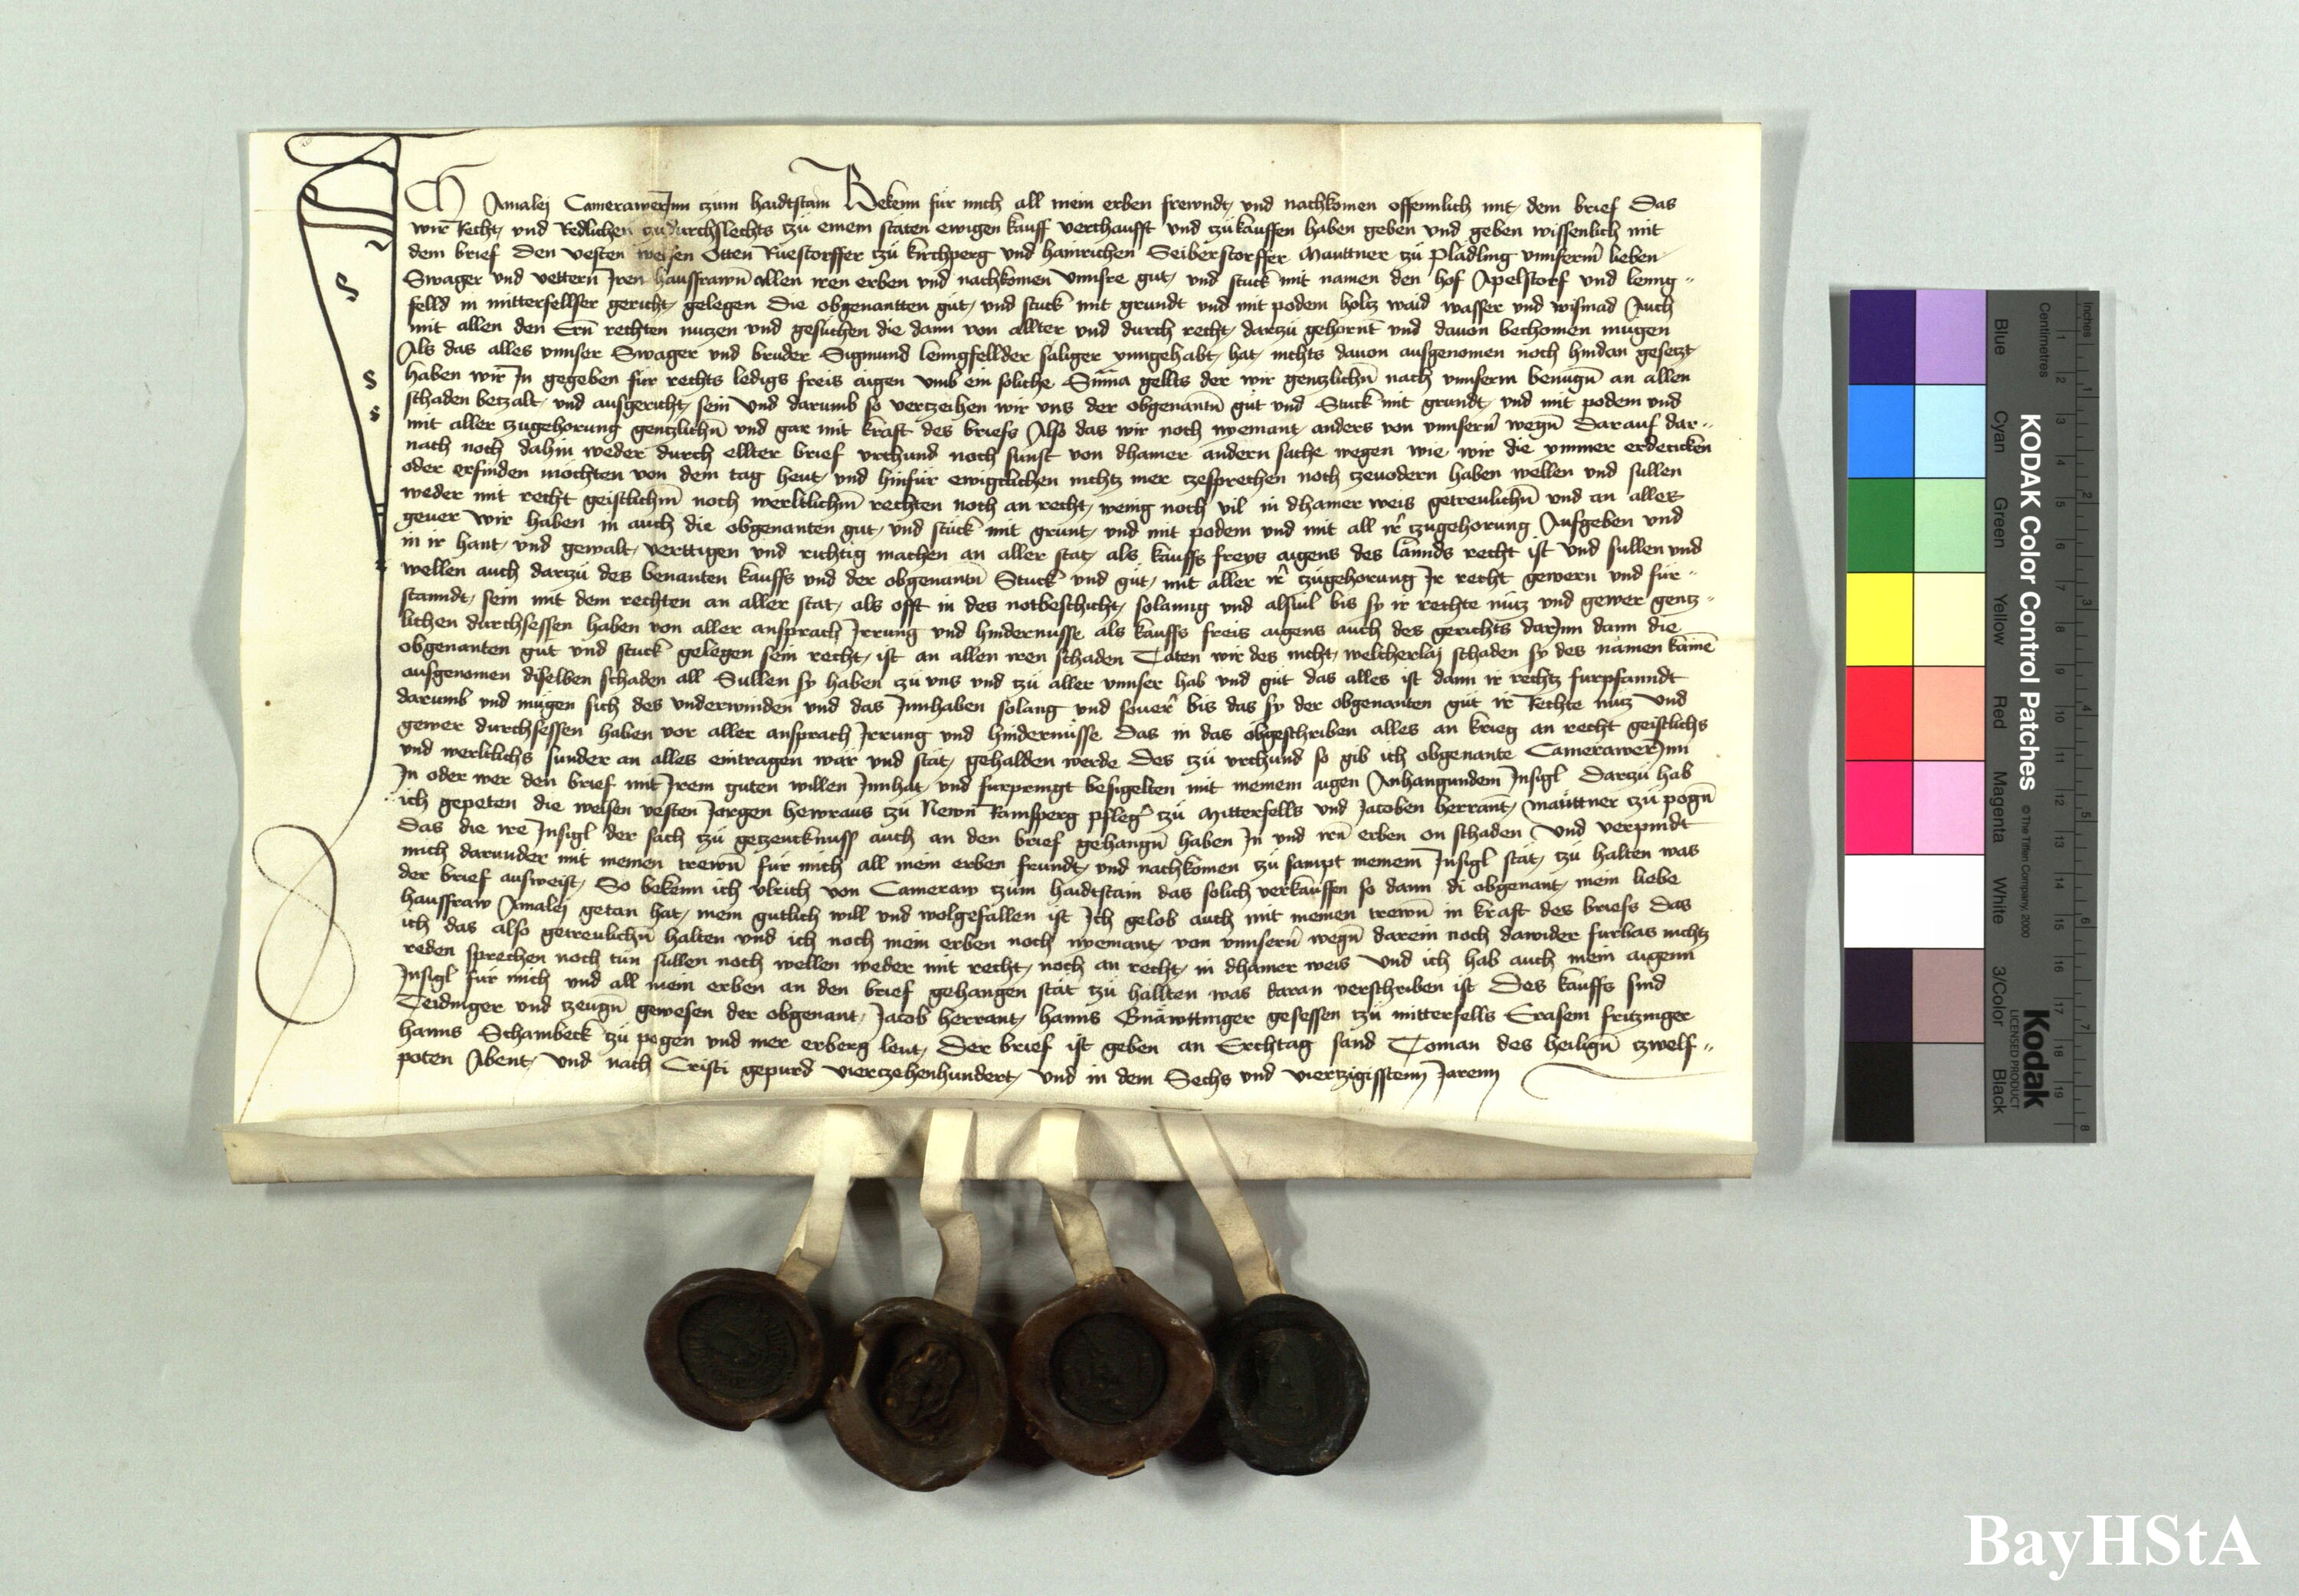 Ich Amalej Camerawerinn tzum haidtstain Bekenn für mich all mein erben frewndt und nachkomen offennlich mit dem brief Das
wir Recht und Redlichen tzu durchslechts tzü einem stäten ewigen kauff verchaufft und tzükauffen haben geben und geben wissenlich mit
dem brief Den vesten weisen Otten Ruestorffer tzü kirchperg und hainrichen Seiberstorffer Mauttner zü Plädling unnserm lieben
Swager und vettern Iren haussfrawn̄ allen iren erben und nachkomen unnsre gut und stuck mit namen den hof Apelstorf und leimg
felld in mitterfellser gericht gelegen Die obgenantten güt und stuck mit grundt und mit podem holtz waid wasser und wismad Auch
mit allen den Ern̄ rechten nutzen und gesüchen die dann von allter und durch recht dartzü gehornt und dauon bechomen mügen
Als das alles unnser Swager und bruder Sigmund leimgfellder säliger ynngehabt hat nichts dauon ausgenomen noch hindan gesetzt
haben wir In gegeben für rechts ledigs freis aigen umb ein soliche Sum̄a gellts der wir gentzlichn̄ nach unnserm benügn̄ an allen
schaden betzalt und ausgericht sein Und darumb so vertzeihen wir uns der obgenantn̄ güt und Stuck mit grundt und mit podem und
mit aller tzugehorung gentzlichn̄ und gar mit kraft des briefs Also das wir noch nyemant anders von unnsern̄ wegn̄ Darauf dar
nach noch dahin weder durch ellter brief urchund noch sunst von dhamer andern sache wegen wie wir die ymmer erdencken
oder erfinden möchten von dem tag heut und hinfür ewigclichen nichtz mer tzesprechen noch tzeuodern haben wellen und sullen
weder mit recht geistlichm̄ noch werltlichm̄ rechten noch an recht wenig noch vil in dhamer weis getreulichn̄ und an alles
geuer Wir haben in auch die obgenanten gut und stück mit grünt und mit podem und mit all ir tzugehorung Aufgeben und
in ir hant und gewalt verttigen und richtig machen an aller stat als kauffs freys aigens des lannds recht ist Und sullen und
wellen auch dartzü des benanten kauffs und der obgenantn̄ Stuck und güt mit aller ir tzügehorung Ir recht gewern und für
stanndt sein mit dem rechten an aller stat als offt in des notbeschicht solanng und alsuil bis sy ir rechte nütz und gewer gentz
lichen durchsessen haben von aller ansprach Irrung und hindernusse als kauffs freis aigens auch des gerichts darInn dann die
obgenanten güt und stuck gelegen sein recht ist an allen iren schaden Täten wir des nicht welcherlaj schaden sy des nämen kämen̄
ausgenomen diselben schaden all Sullen sy haben zü uns und tzü aller unnser hab und güt das alles ist dann ir rechtz furpfanndt
darumb und mügen sich des underwinden und das Innhaben solang und souer bis das sy der obgenanten güt ir Rechte nütz Und
gewer durchsessen haben vor aller ansprach Irrung und hindernüsse Das in das obgeschriben alles an krieg an recht geistlichs
und werltlichs sunder an alles eintragen war und stät gehalden werde Des tzü urchund so gib ich obgenante Camerawerinn
In oder wer den brief mit Irem guten willen Innhat und furpringt besigelten mit meinem aigen Anhangundem Insigl Dartzü hab
ich gepeten die weisen vesten Jorgen hewraus tzü Newn̄ Ramsperg pfleg̕ tzü Mitterfells und Jacoben herrant Mauttner tzü pogn̄
Das die ire Insigl der sach tzü getzeucknuss auch an den brief gehangn̄ haben In und irn̄ erben on schaden Und verpindt
mich darunder mit meinen trewn̄ für mich all mein erben freundt und nachkomen tzü sampt meinem Insigl stät tzü halten was
der brief ausweist So bekenn ich Ulrich von Cameraw tzum haidtstain das solich verkauffen so dann di obgenant mein liebe
haussfraw Amalej getan hat mein gutlich will und wolgefallen ist Ich gelob auch mit meinen trewn̄ in kraft des briefs Das
ich das also getreulichn̄ halten und ich noch mein erben noch nyemant von unnsern̄ wegn̄ darein noch dawider furbas nichtz
reden sprechen noch tün sullen noch wellen weder mit recht noch an recht in dhamer weis Und ich hab auch mein aigenn
Insigl für mich und all mein erben an den brief gehangen stät tzü hallten was daran verschriben ist Des kauffs sind
Teidinger und tzeugn̄ gewesen der obgenant Jacob herrant hanns Gnäwttinger gesessen tzü mitterfells Erasem fritzinger
hanns Schambeck tzü pogen und mer erberg leut Der brief ist geben an Erchtag sand Toman des heilign̄ tzwelf
poten Abent Und nach Cristi gepurd viertzehenhundert Und in dem Sechs und viertzigisstenn Jarenn
KODAK Color Control Patches
© The Tiffen Company, 2000
Kodak
LICENSED PRODUCT
Inches
Centimetres
Blue
Cyan
Green
Yellow
Red
Magenta
White
3/Color
Black
1 2 3 4 5 6 7 8
1 2 3 4 5 6 7 8 9 10 11 12 13 14 15 16 17 18 19
BayHStA